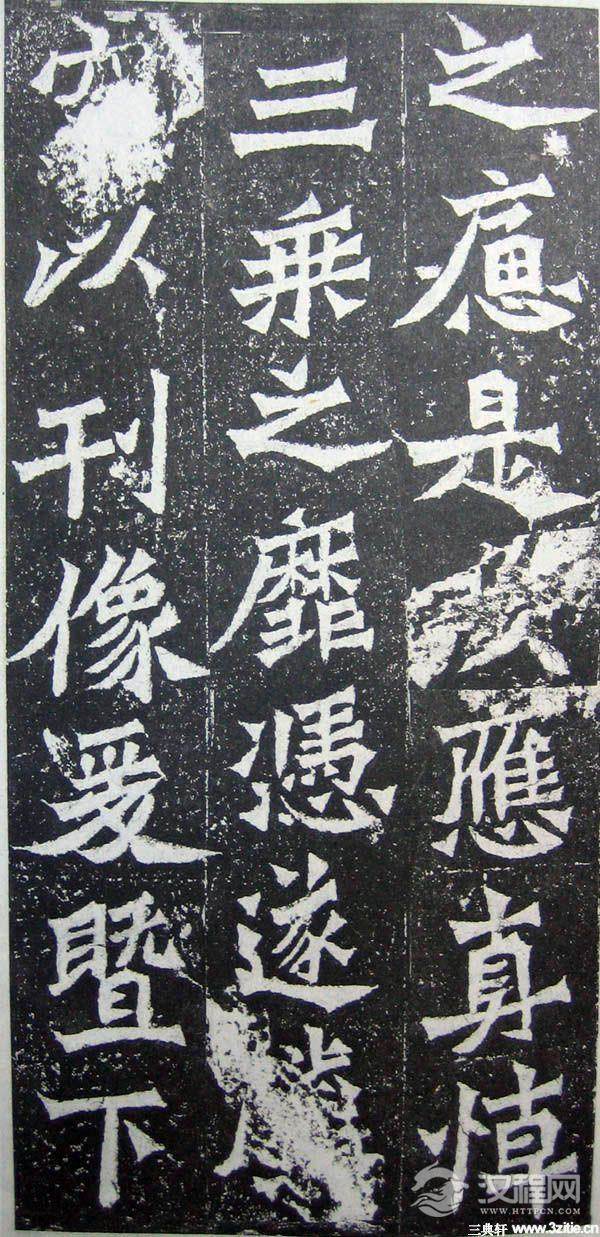 之是應真悼
三乗之靡憑遂
以刊像爰暨下
汉程网
WWW.HTTPCN.COM
三典轩 www.3zitie.cn